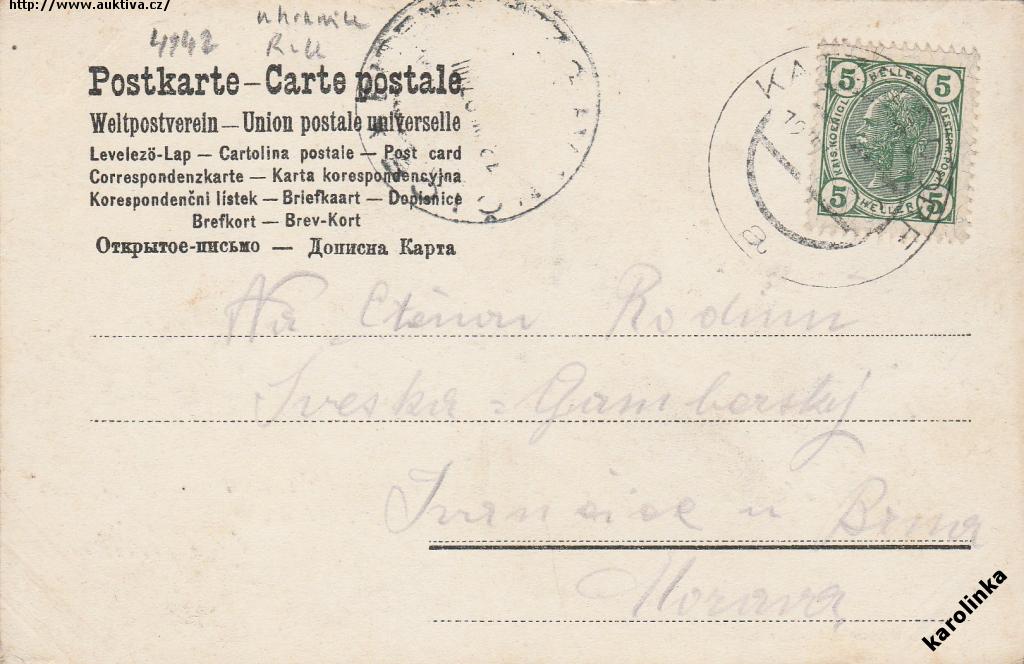 http://www.auktiva.cz/
4942
Postkarte – Carte postale
Weltpostverein – Union postale universelle
Levelezö-Lap – Cartolina postale – Post card
Correspondenzkarte – Karta korespondencyjna
Korespondenční lístek – Briefkaart – Dopisnice
Brefkort – Brev-Kort
Открытое-письмо – Дописна Карта
5 HELLER 5
KAIS. KOENIGL. OESTERR. POST
5 HELLER 5
KA
a
Na Ctěnou Rodinu
Sveska = Gamberský
Ivančice u Brna
Morava
karolinka